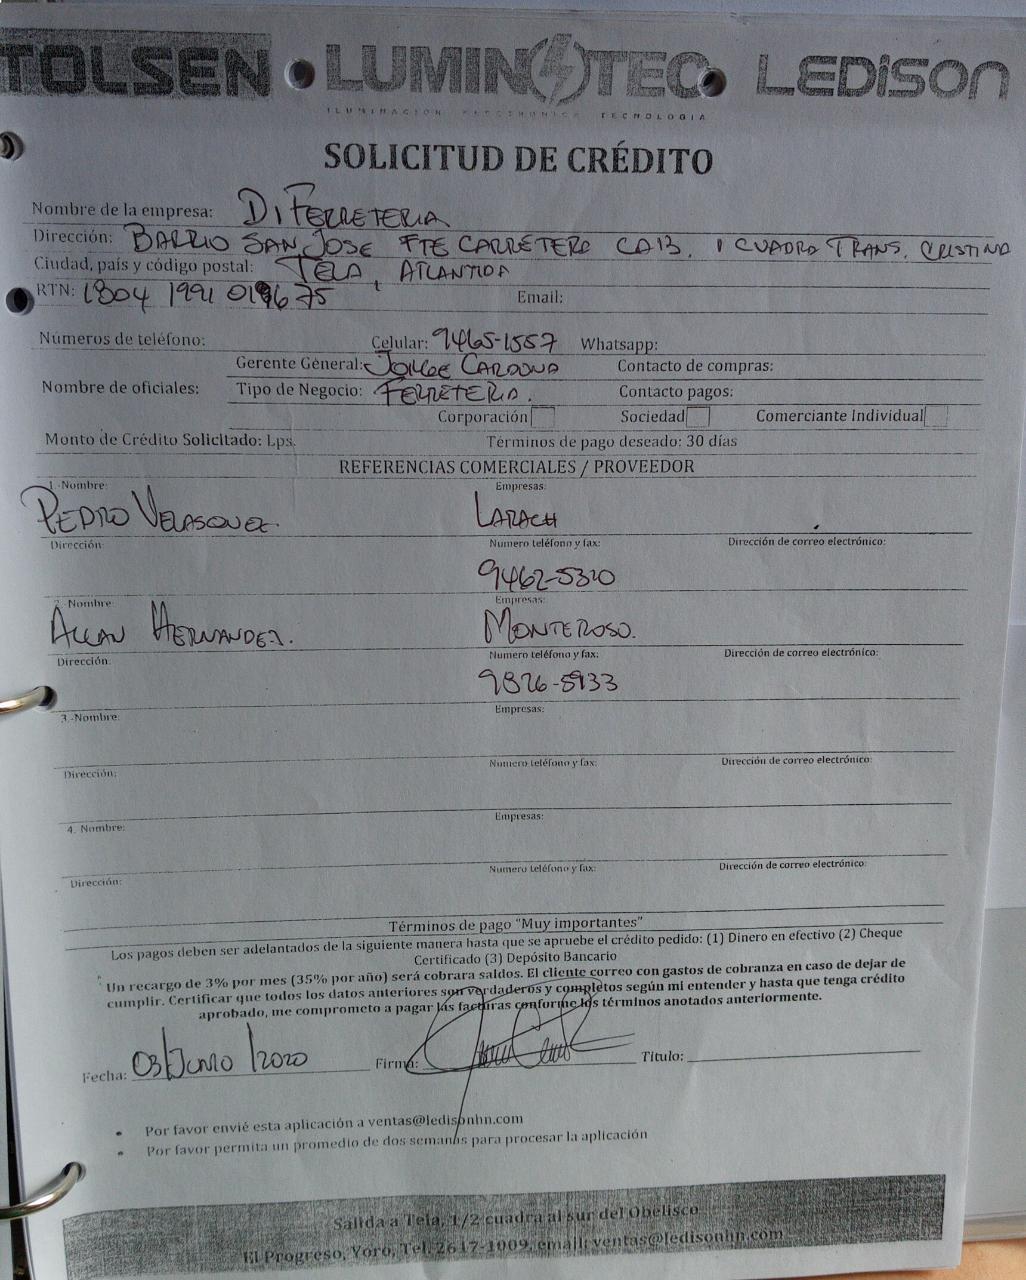 TOLSEN LUMINOTEC LEDISON
ILUMINACION ELECTRONICA TECNOLOGIA
SOLICITUD DE CRÉDITO
Nombre de la empresa: DiFERRETERIA
Dirección: BARRIO SAN JOSE FTE CARRETERO CA13, 1 CUADRA TRANS. CRISTINA
Ciudad, país y código postal: TELA, ATLANTIDA
RTN: 1804 1991 019675 Email:
Números de teléfono: Celular: 9465-1557 Whatsapp:
Gerente General: JORGE CARDONA Contacto de compras:
Nombre de oficiales: Tipo de Negocio: FERRETERIA. Contacto pagos:
Corporación Sociedad Comerciante Individual
Monto de Crédito Solicitado: Lps. Términos de pago deseado: 30 días
REFERENCIAS COMERCIALES / PROVEEDOR
1.-Nombre: Empresas:
PEDRO VELASQUEZ. LARACH
Dirección: Numero teléfono y fax: Dirección de correo electrónico:
9462-5320
2. Nombre: Empresas:
ALLAN HERNANDEZ. MONTEROSO.
Dirección: Numero teléfono y fax: Dirección de correo electrónico:
9826-5933
3.-Nombre: Empresas:
Dirección: Numero teléfono y fax: Dirección de correo electrónico:
4. Nombre: Empresas:
Dirección: Numero teléfono y fax: Dirección de correo electrónico:
Términos de pago "Muy importantes"
Los pagos deben ser adelantados de la siguiente manera hasta que se apruebe el crédito pedido: (1) Dinero en efectivo (2) Cheque
Certificado (3) Depósito Bancario
Un recargo de 3% por mes (35% por año) será cobrara saldos. El cliente correo con gastos de cobranza en caso de dejar de
cumplir. Certificar que todos los datos anteriores son verdaderos y completos según mi entender y hasta que tenga crédito
aprobado, me comprometo a pagar las facturas conforme los términos anotados anteriormente.
Fecha: 03/JUNIO/2020 Firma: Titulo:
• Por favor envié esta aplicación a ventas@ledisonhn.com
• Por favor permita un promedio de dos semanas para procesar la aplicación
Salida a Tela, 1/2 cuadra al sur del Obelisco
El Progreso, Yoro, Tel. 2647-1009, email: ventas@ledisonhn.com